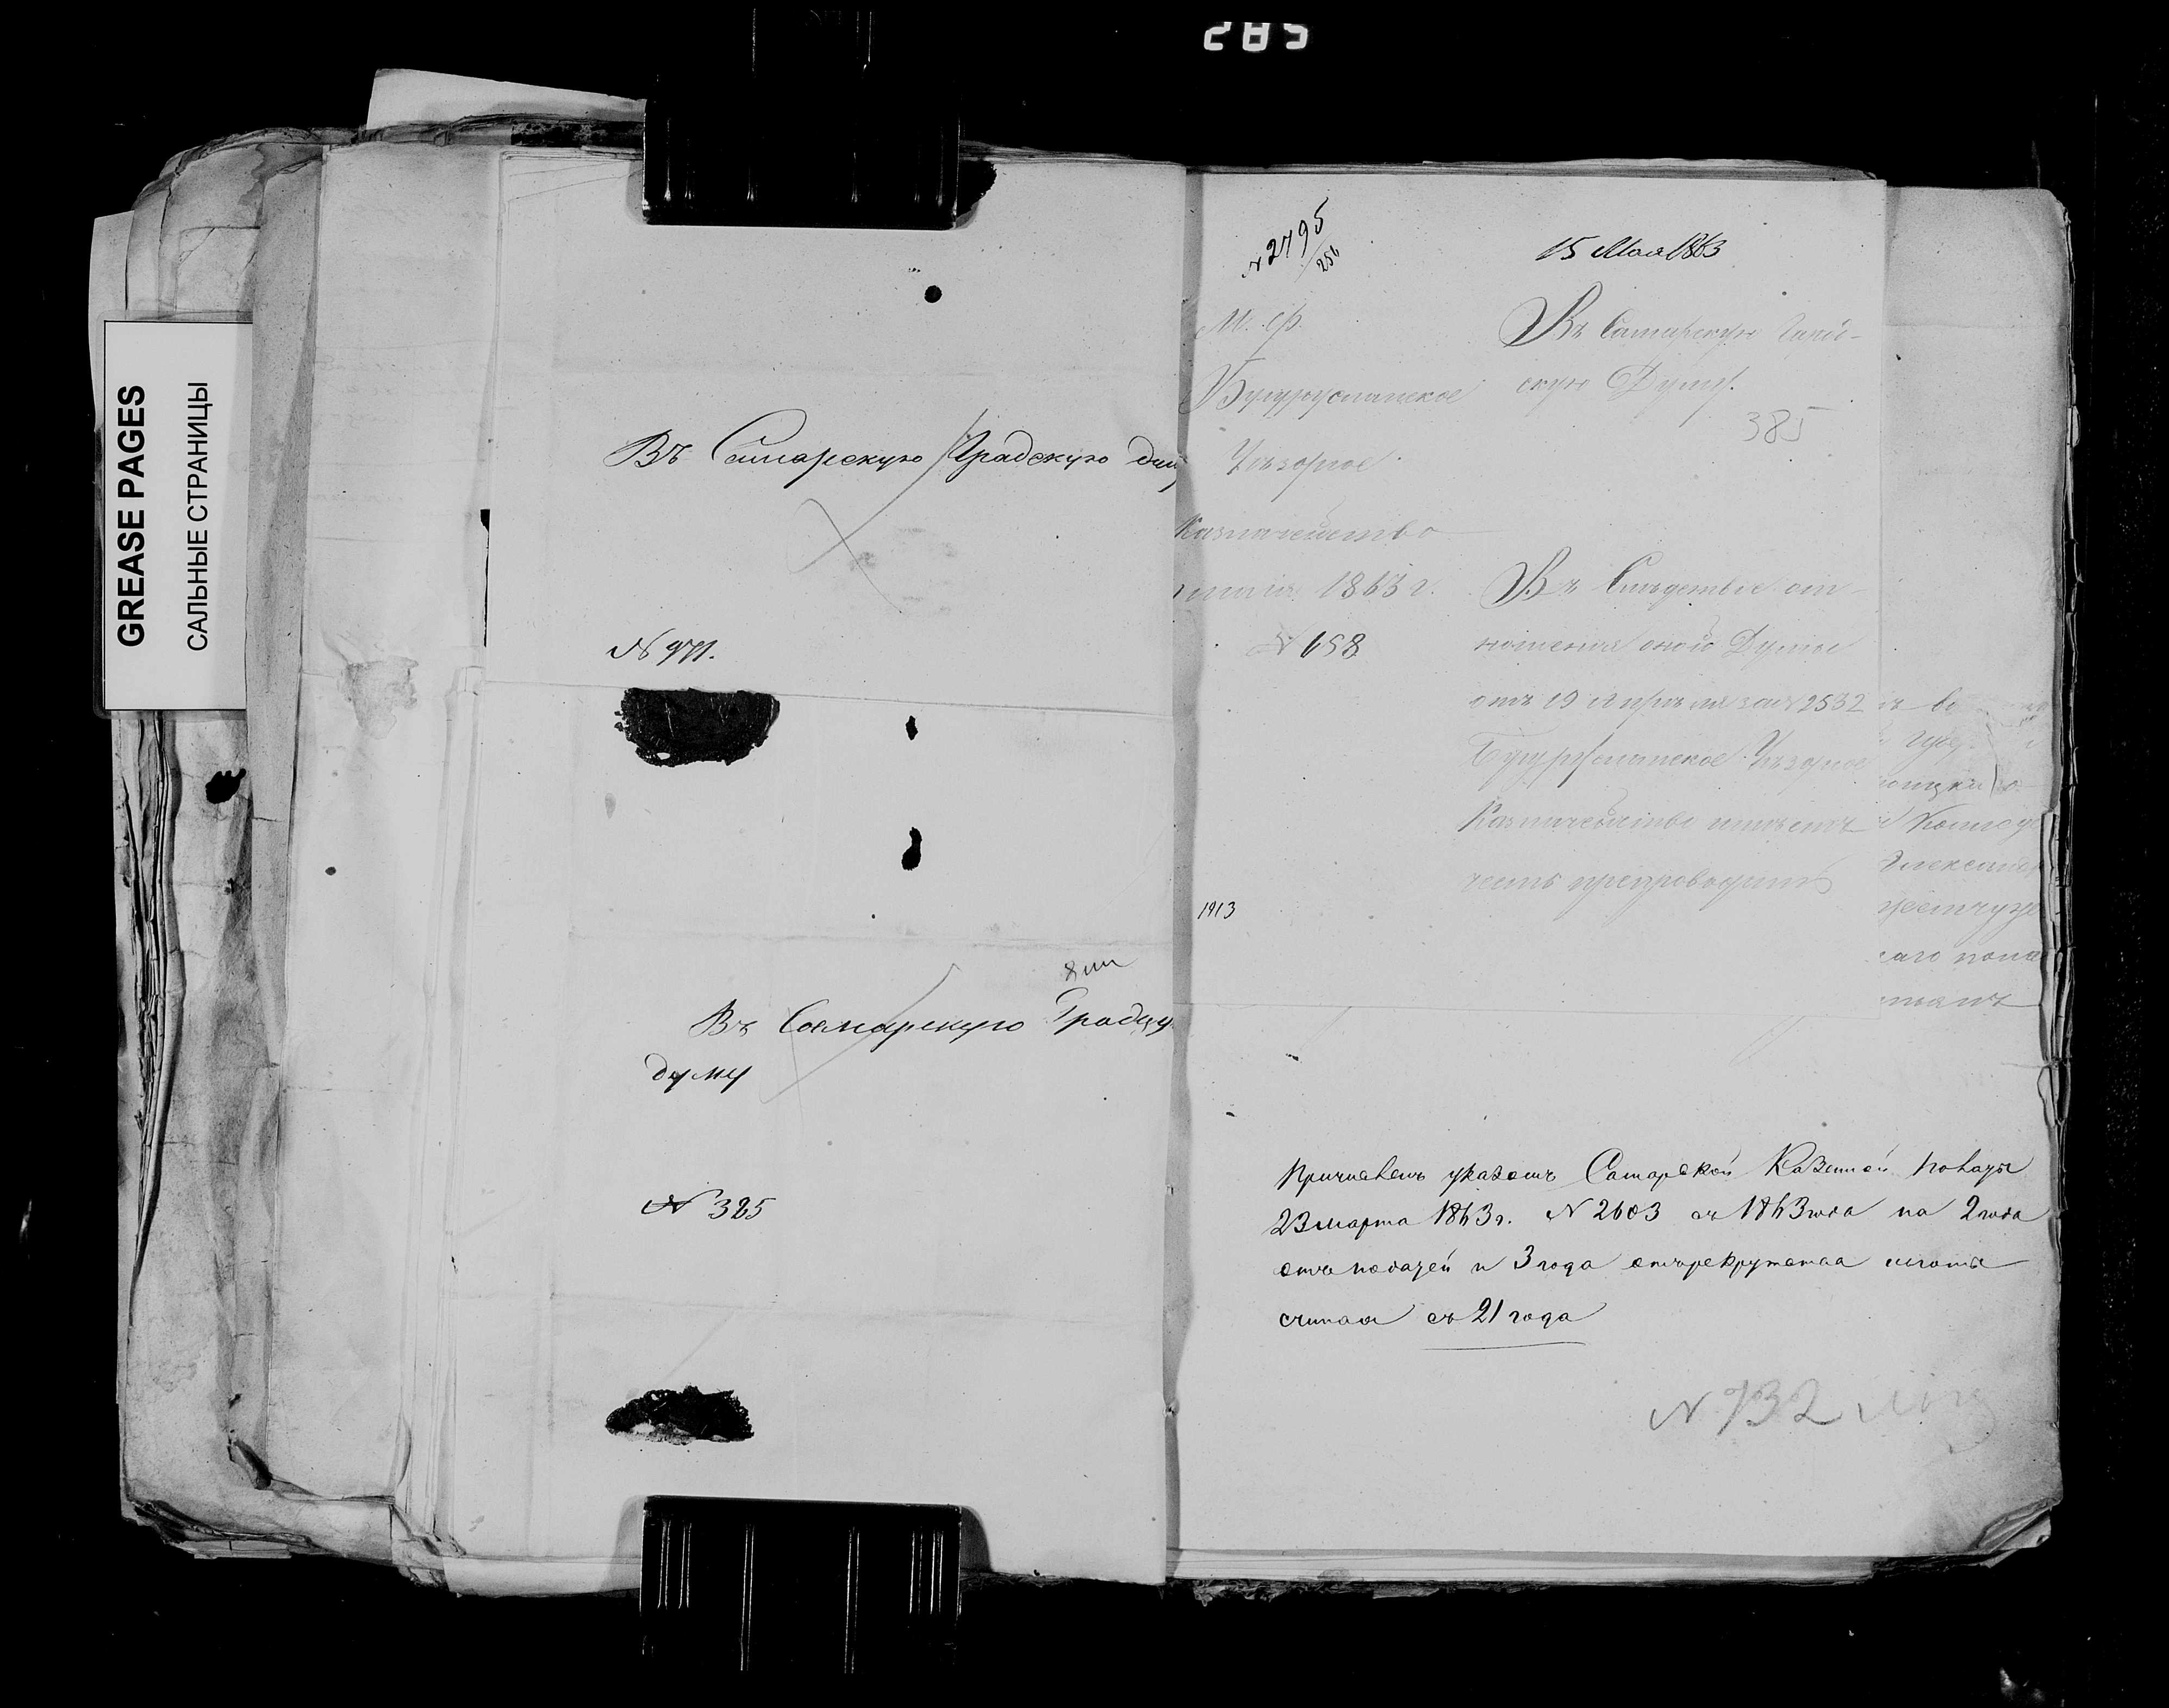 285
GREASE PAGES
САЛЬНЫЕ СТРАНИЦЫ
Въ Самарскую Градскую Дум
№ 971.
Въ Самарскую Градску
думу
№ 325
№ 2795/256
15 Мая 1863
М. Ф.
Бугурусланское
Уѣздное
Казначейство
мая 1863 г.
№ 658
1913
Въ Самарскую Град-
скую Думу.
385
Въ Слѣдствіе от-
ношенія оной Думы
отъ 19 Апрѣля за № 2532
Бугурусланское Уѣздное
Казначейство имѣетъ
честь препроводить
Причисленъ указомъ Самарской Казенной Палаты
23 марта 1863 г. № 2603 съ 1863 года на 2 года
отъ податей и 3 года отъ рекрутства льготы
считая съ 21 года
№ 732